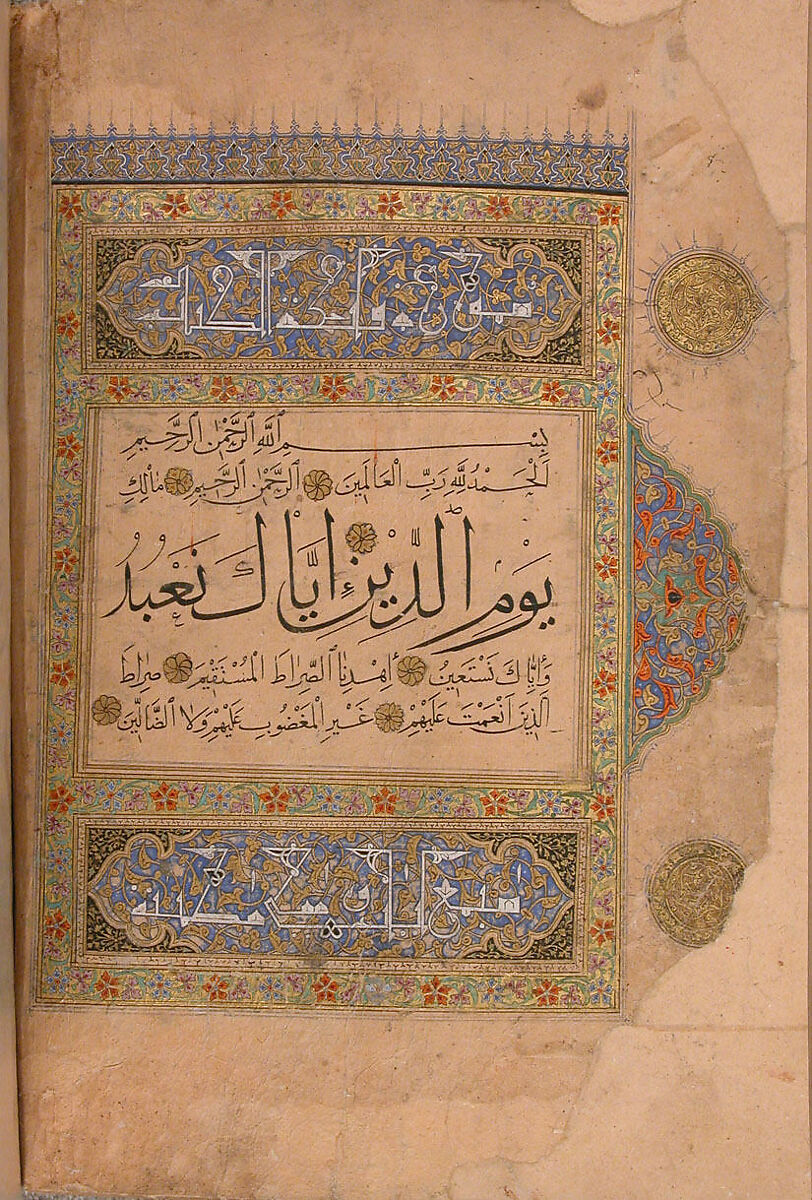 فاتحة الكتاب
بِسْمِ اللَّهِ الرَّحْمٰنِ الرَّحِيمِ
اَلْحَمْدُ لِلَّهِ رَبِّ الْعَالَمِينَ الرَّحْمٰنِ الرَّحِيمِ مَالِكِ
يَوْمِ الدِّينِ اِيَّاكَ نَعْبُدُ
وَاِيَّاكَ نَسْتَعِينُ اِهْدِنَا الصِّرَاطَ الْمُسْتَقِيمَ صِرَاطَ
الَّذِينَ اَنْعَمْتَ عَلَيْهِمْ غَيْرِ الْمَغْضُوبِ عَلَيْهِمْ وَلَا الضَّالِّينَ